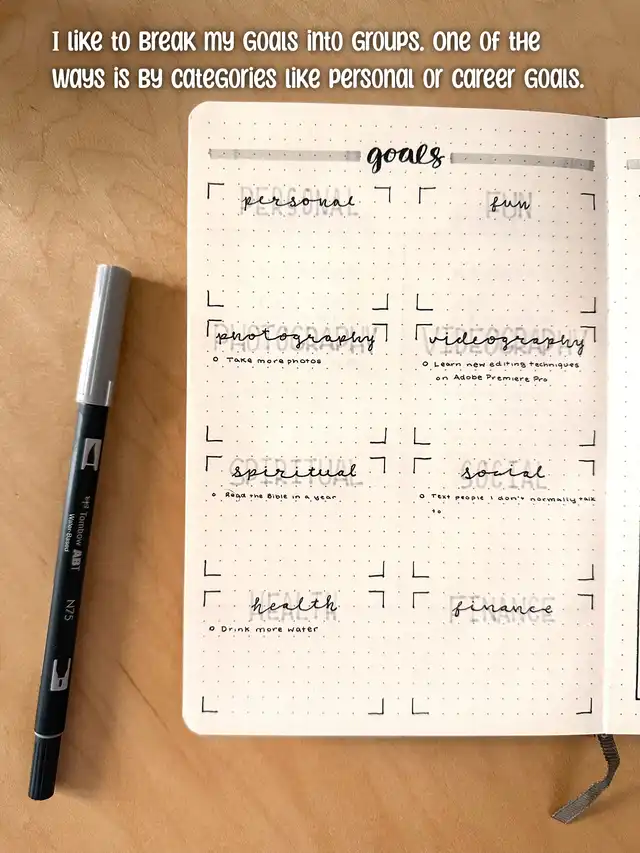 I like to break my goals into groups. One of the
ways is by categories like personal or career goals.
goals
PERSONAL
personal
FUN
fun
PHOTOGRAPHY
photography
Take more photos
VIDEOGRAPHY
videography
Learn new editing techniques
on Adobe Premiere Pro
SPIRITUAL
spiritual
Read the Bible in a year
SOCIAL
social
Text people I don't normally talk
to
HEALTH
health
Drink more water
FINANCE
finance
Tombow ABT
Water Based
N75